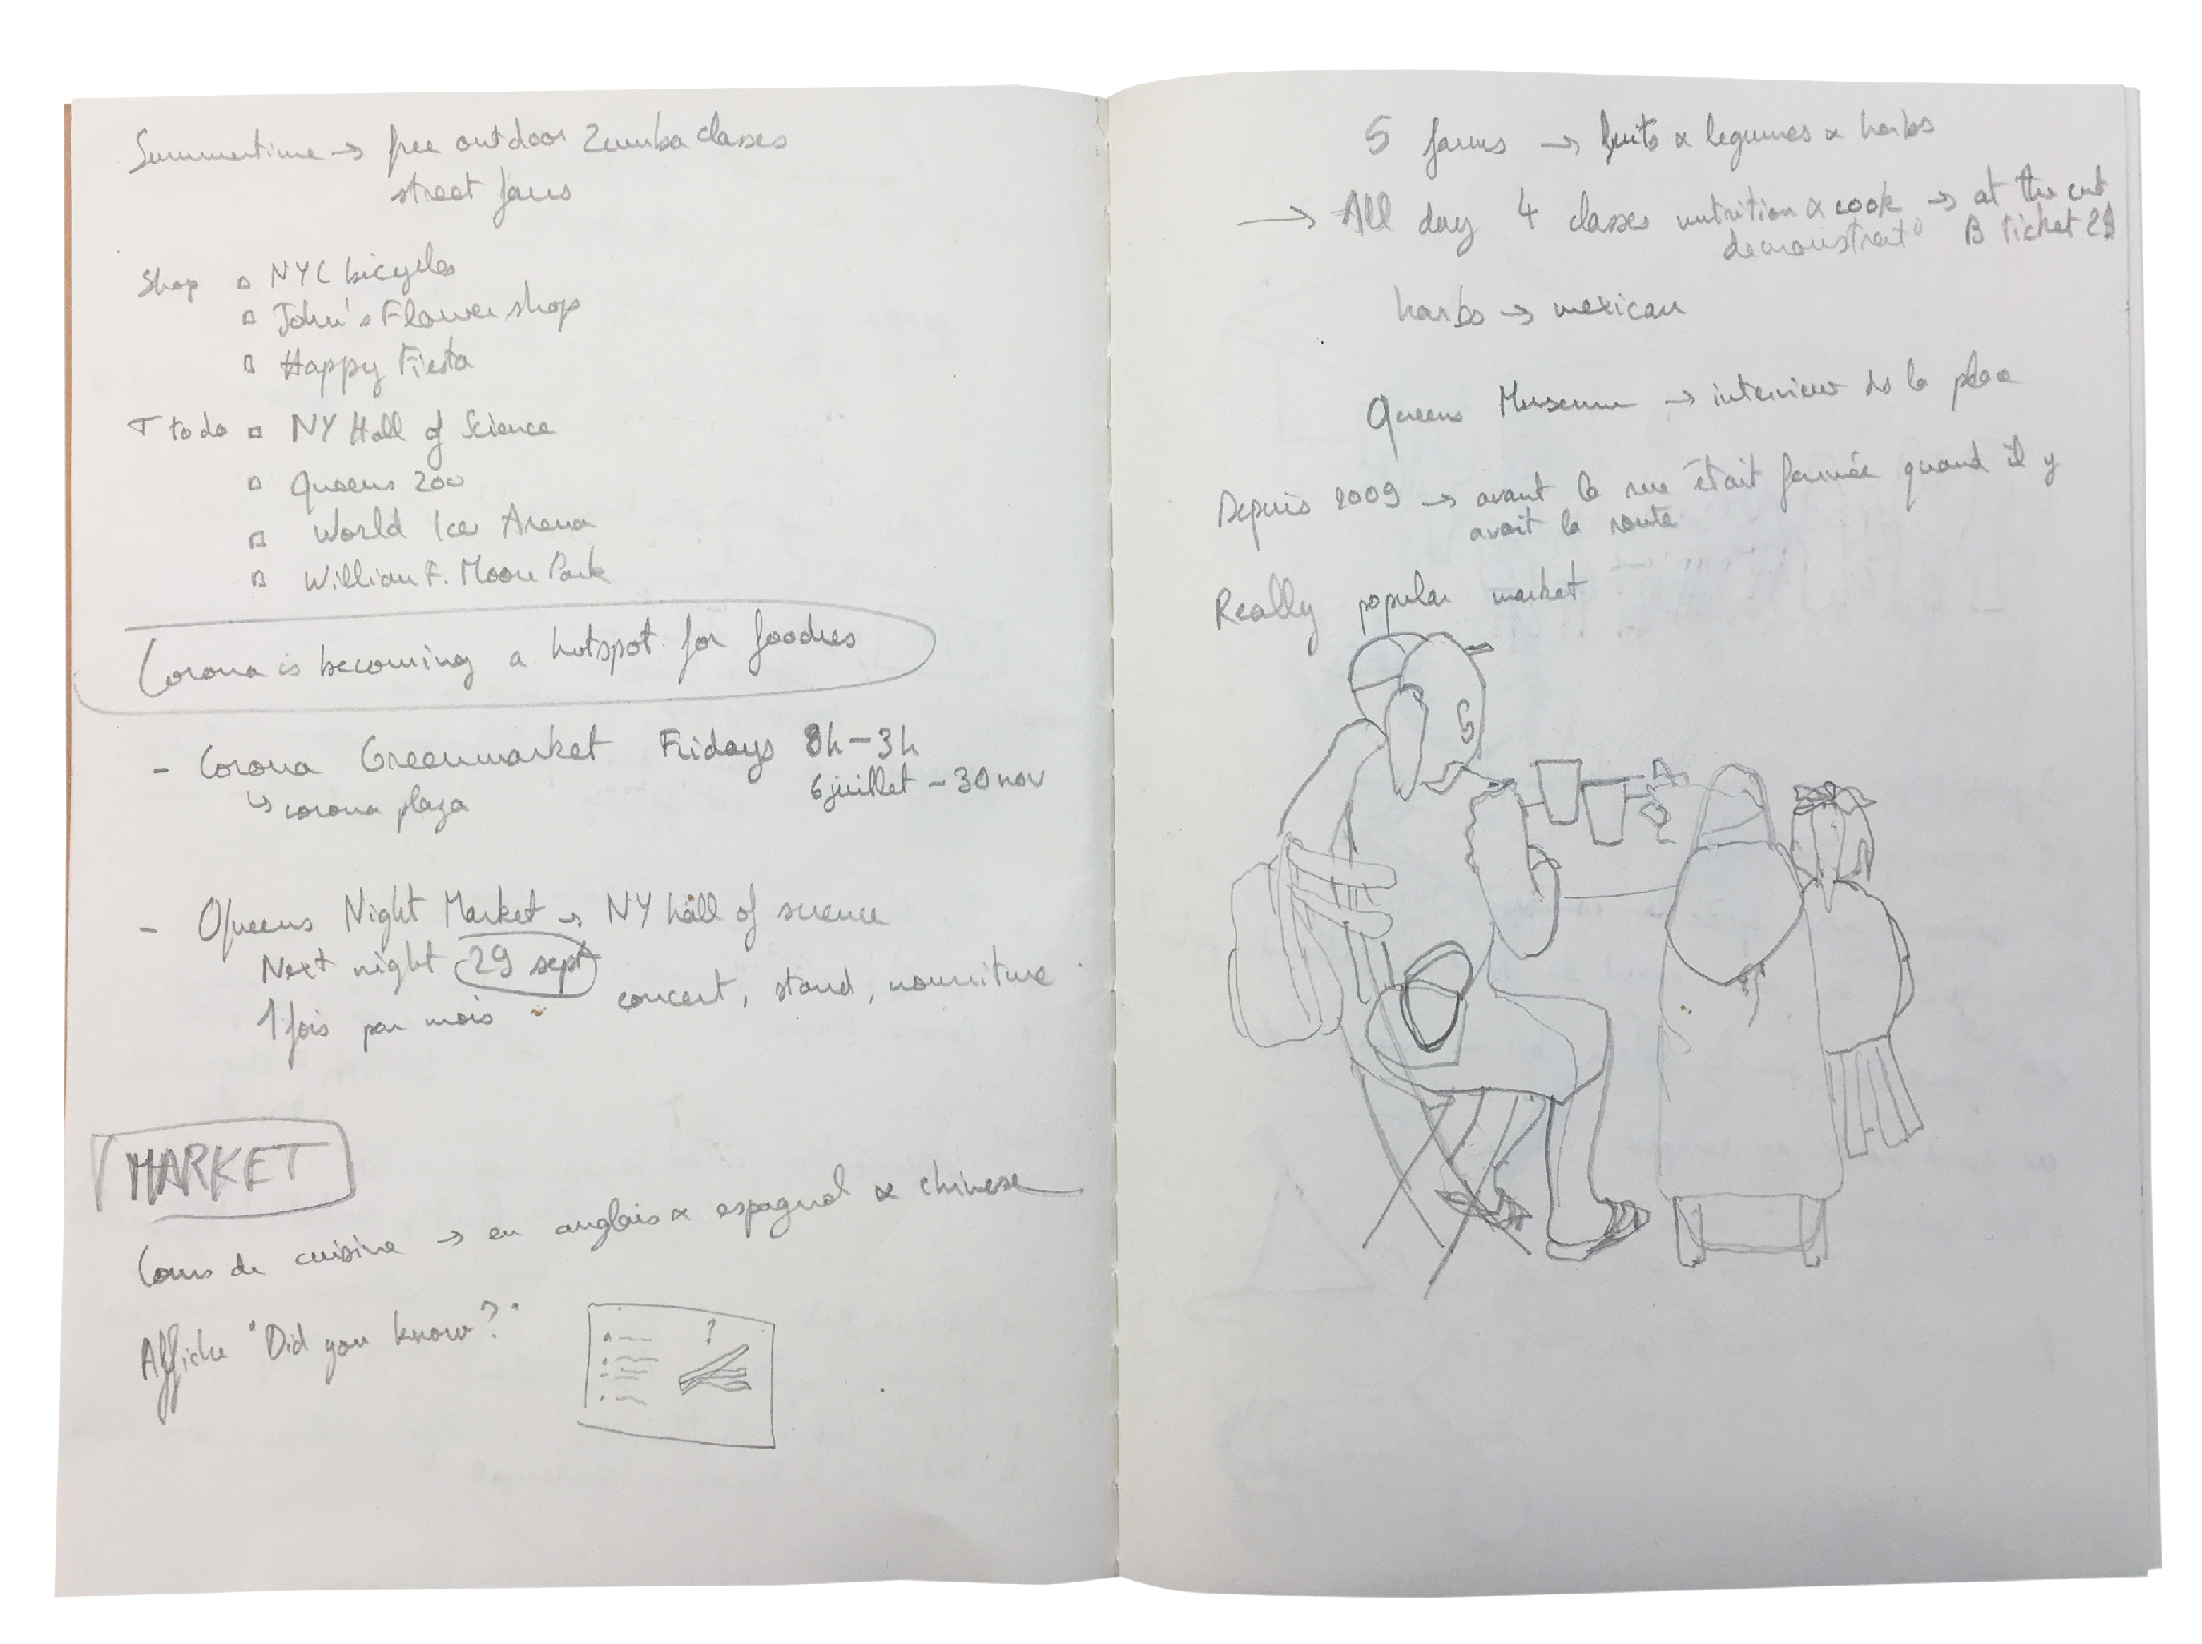 Summertime → free outdoor Zumba classes
street fairs
Shop ▫ NYC bicycles
▫ John's Flower shop
▫ Happy Fiesta
T to do ▫ NY Hall of Science
▫ Queens Zoo
▫ World Ice Arena
▫ William F. Moore Park
Corona is becoming a hotspot for foodies
- Corona Greenmarket Fridays 8h-3h
↳ corona plaza 6 juillet - 30 nov
- Queens Night Market → NY hall of science
Next night 29 sept
1 fois par mois concert, stand, nourriture
MARKET
Cours de cuisine → en anglais & espagnol & chinese
Affiche "Did you know?"
?
5 farms → fruits & legumes & herbs
→ All day 4 classes nutrition & cook → at the end
demonstrat° ticket 2$
herbs → mexican
Queens Museum → interview ds la place
Depuis 2009 → avant la rue était fermée quand il y
avait la route
Really popular market